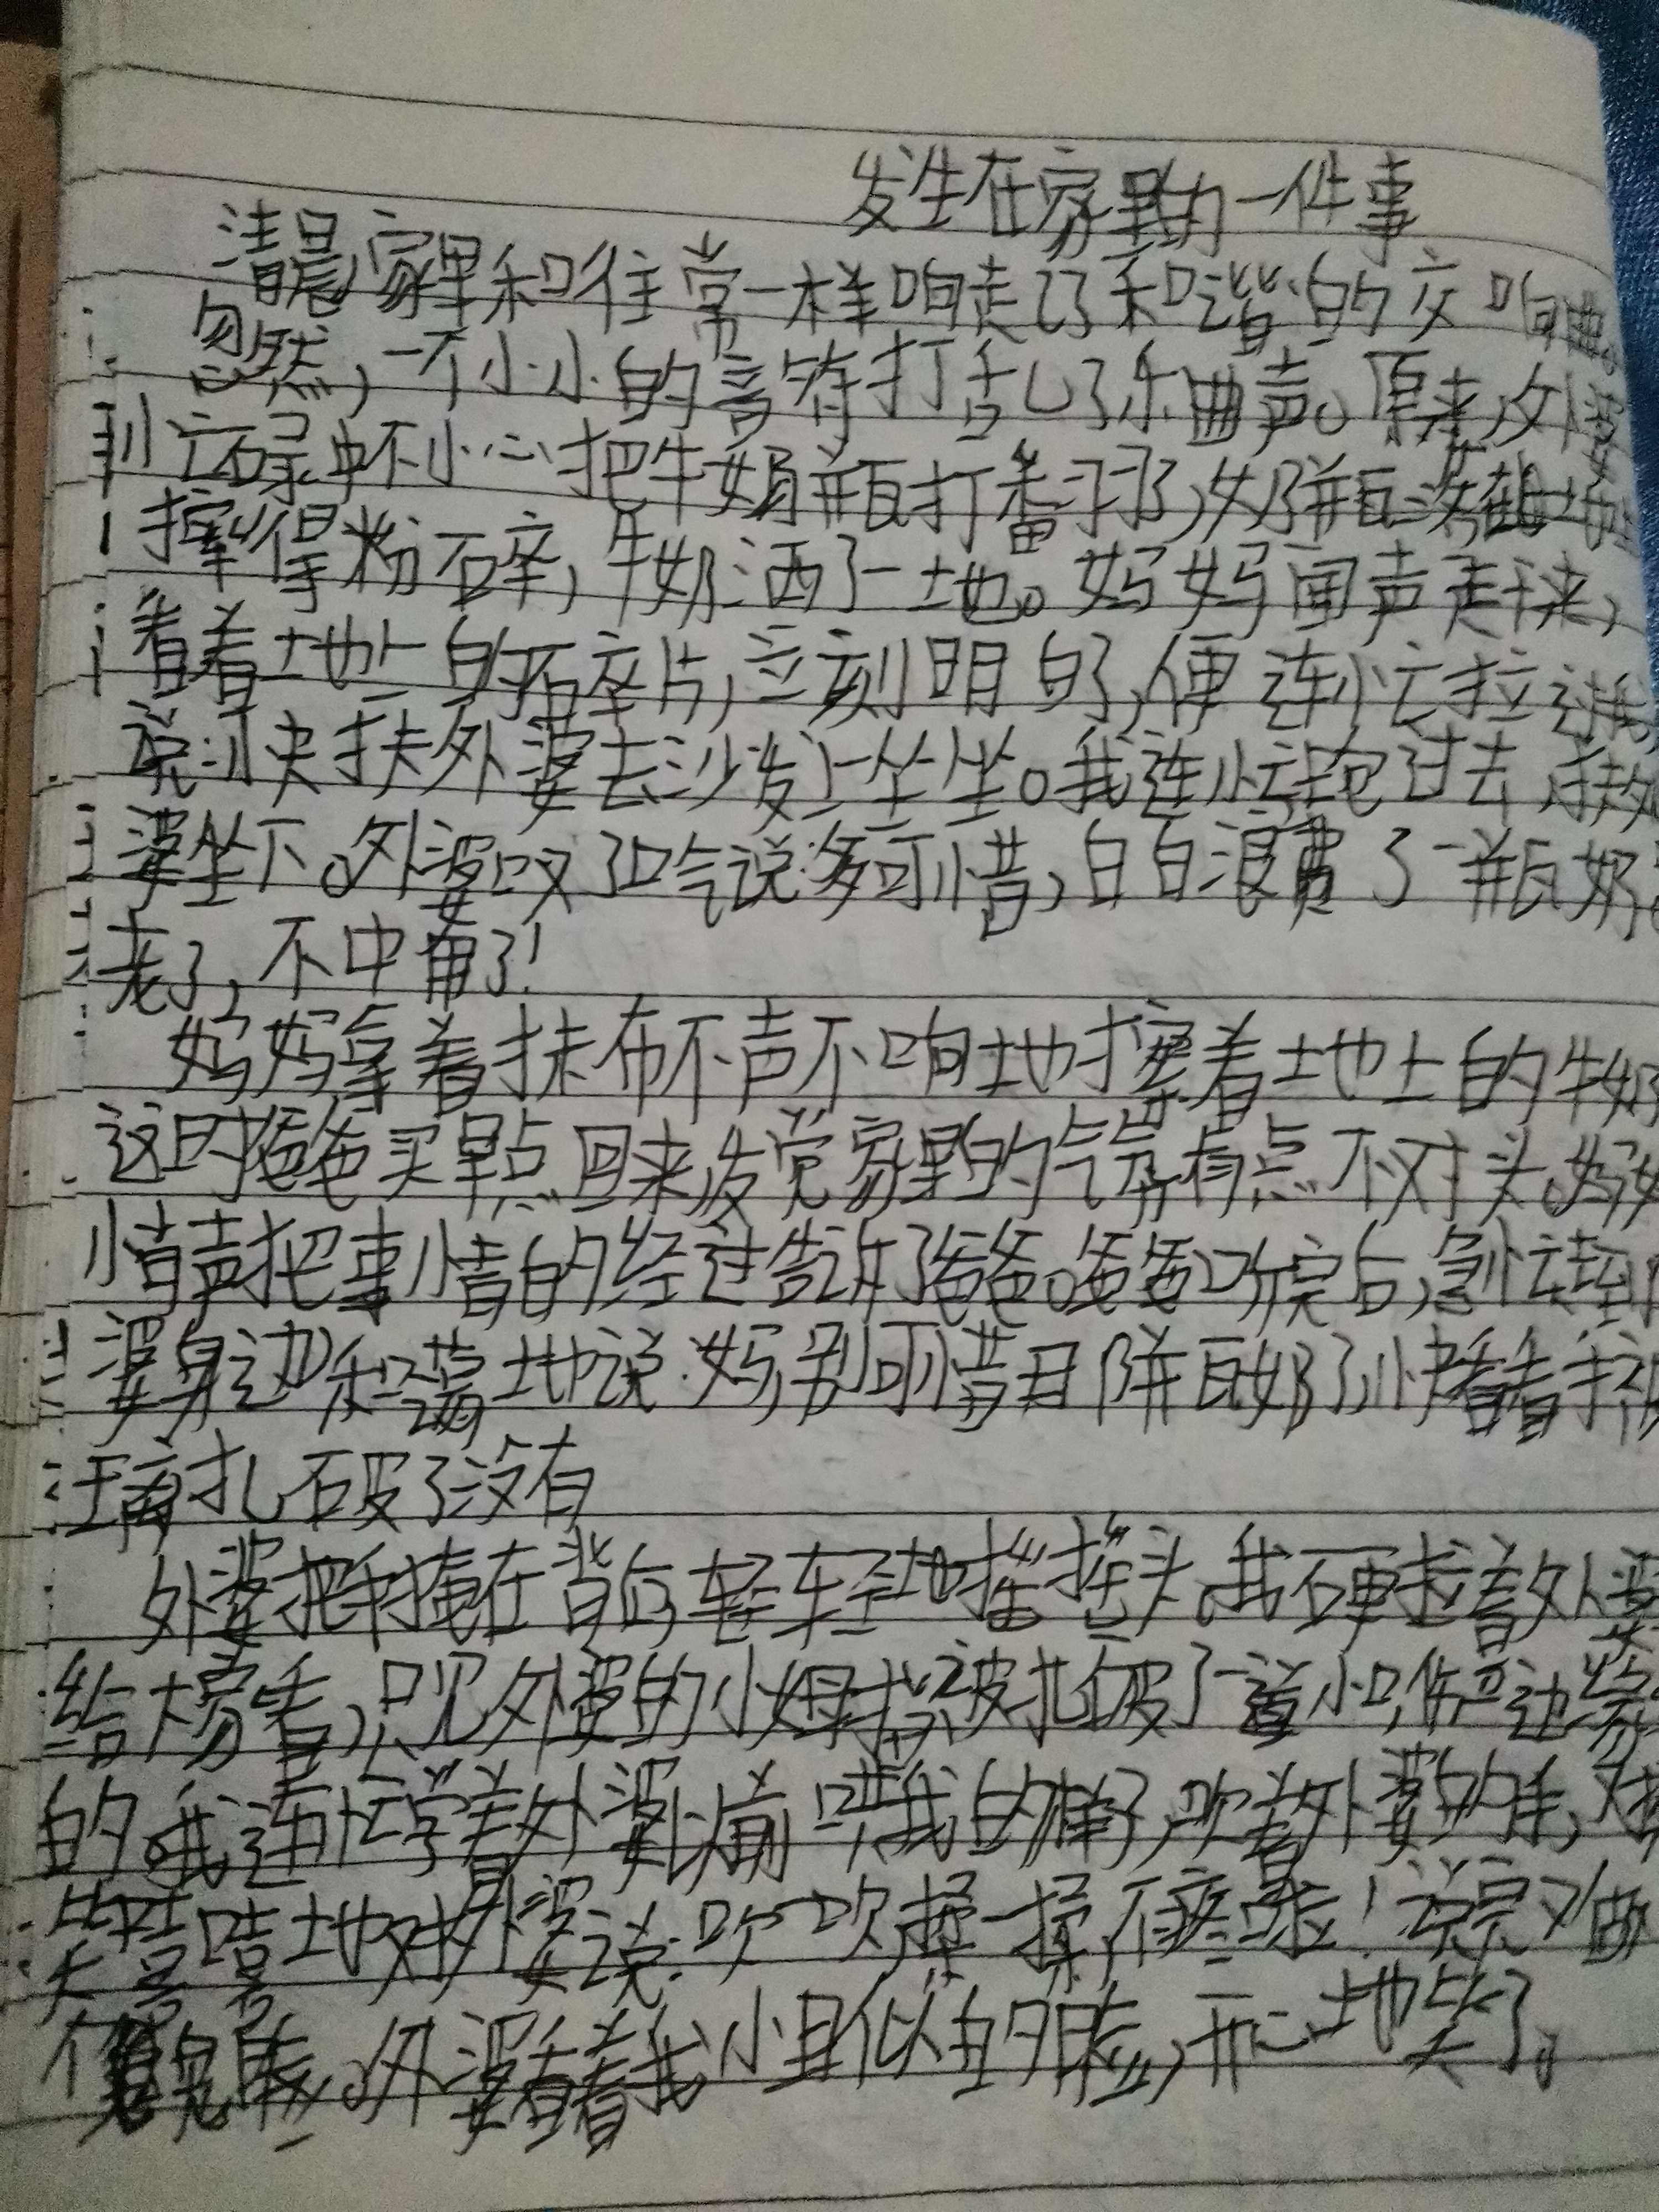 发生在家里的一件事
清晨,家里和往常一样响走了和谐的交响曲。
忽然,一个小小的音符打乱了乐曲声。原来,外婆
忙碌中不小心把牛奶瓶打翻了,奶瓶落在地
摔得粉碎,牛奶洒了一地。妈妈闻声赶来,
看着地上的碎片,立刻明白了,便连忙拉过我
说:快扶外婆去沙发上坐坐。我连忙跑过去,扶
婆坐下。外婆叹了口气说:多可惜,白白浪费了一瓶奶。
老了,不中用了!
妈妈拿着抹布不声不响地擦着地上的牛奶
这时爸爸买早点回来发觉家里的气氛有点不对头。妈妈
悄声把事情的经过告诉了爸爸。爸爸听完后,急忙走到
婆身边和蔼地说:妈,别可惜那瓶奶了,快看看手被
璃扎破了没有
外婆把手掩在背后,轻轻地摇摇头。我硬拉着外婆
给大家看,只见外婆的小姆指被扎破了一道小口,伤
的。我连忙学着外婆以前哄我的样子,吹着外婆的手,
笑嘻嘻地对外婆说:吹一吹,揉一揉,不疼啦!说完又做
个鬼脸。外婆看着我小丑似的脸,开心地笑了。